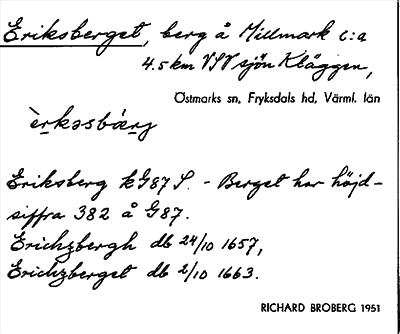 Eriksberget, berg å Millmark c:a
4.5 km VSV sjön Kläggen,
Östmarks sn, Fryksdals hd, Värml. län
èrkəsbǽrg
Eriksberg kG87S. - Berget har höjd-
siffra 382 å G87.
Erichzbergh db 24/10 1657,
Erichzberget db 2/10 1663.
RICHARD BROBERG 1951